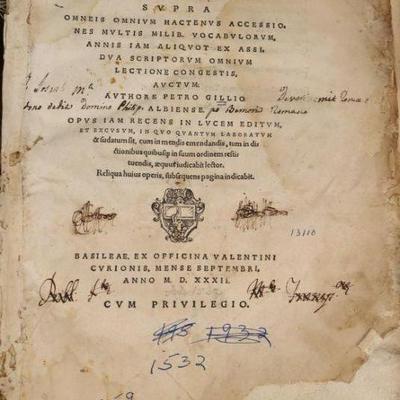 SVPRA
OMNEIS OMNIVM HACTENVS ACCESSIO,
NES MVLTIS MILIB. VOCABVLORVM,
ANNIS IAM ALIQVOT EX ASSI,
DVA SCRIPTORVM OMNIVM
LECTIONE CONGESTIS,
AVCTVM.
AVTHORE PETRO GILLIO
dedit Domino Philip.
ALBIENSE.
OPVS IAM RECENS IN LVCEM EDITVM,
ET EXCVSVM, IN QVO QVANTVM LABORATVM
& sudatum sit, cum in mendis emendandis, tum in dis
ctionibus quibusq; in suum ordinem restis
tuendis, æquus iudicabit lector.
Reliqua huius operis, subsequens pagina indicabit.
13110
BASILEAE, EX OFFICINA VALENTINI
CVRIONIS, MENSE SEPTEMBRI,
ANNO M. D. XXXII.
CVM PRIVILEGIO.
1932
1532